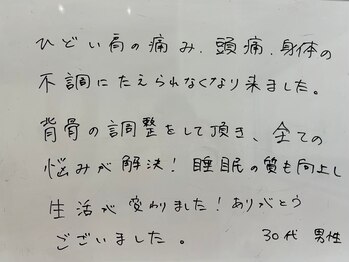 ひどい肩の痛み、頭痛、身体の
不調にたえられなくなり来ました。
背骨の調整をして頂き、全ての
悩みが解決！睡眠の質も向上し
生活が変わりました！ありがとう
ございました。 30代 男性